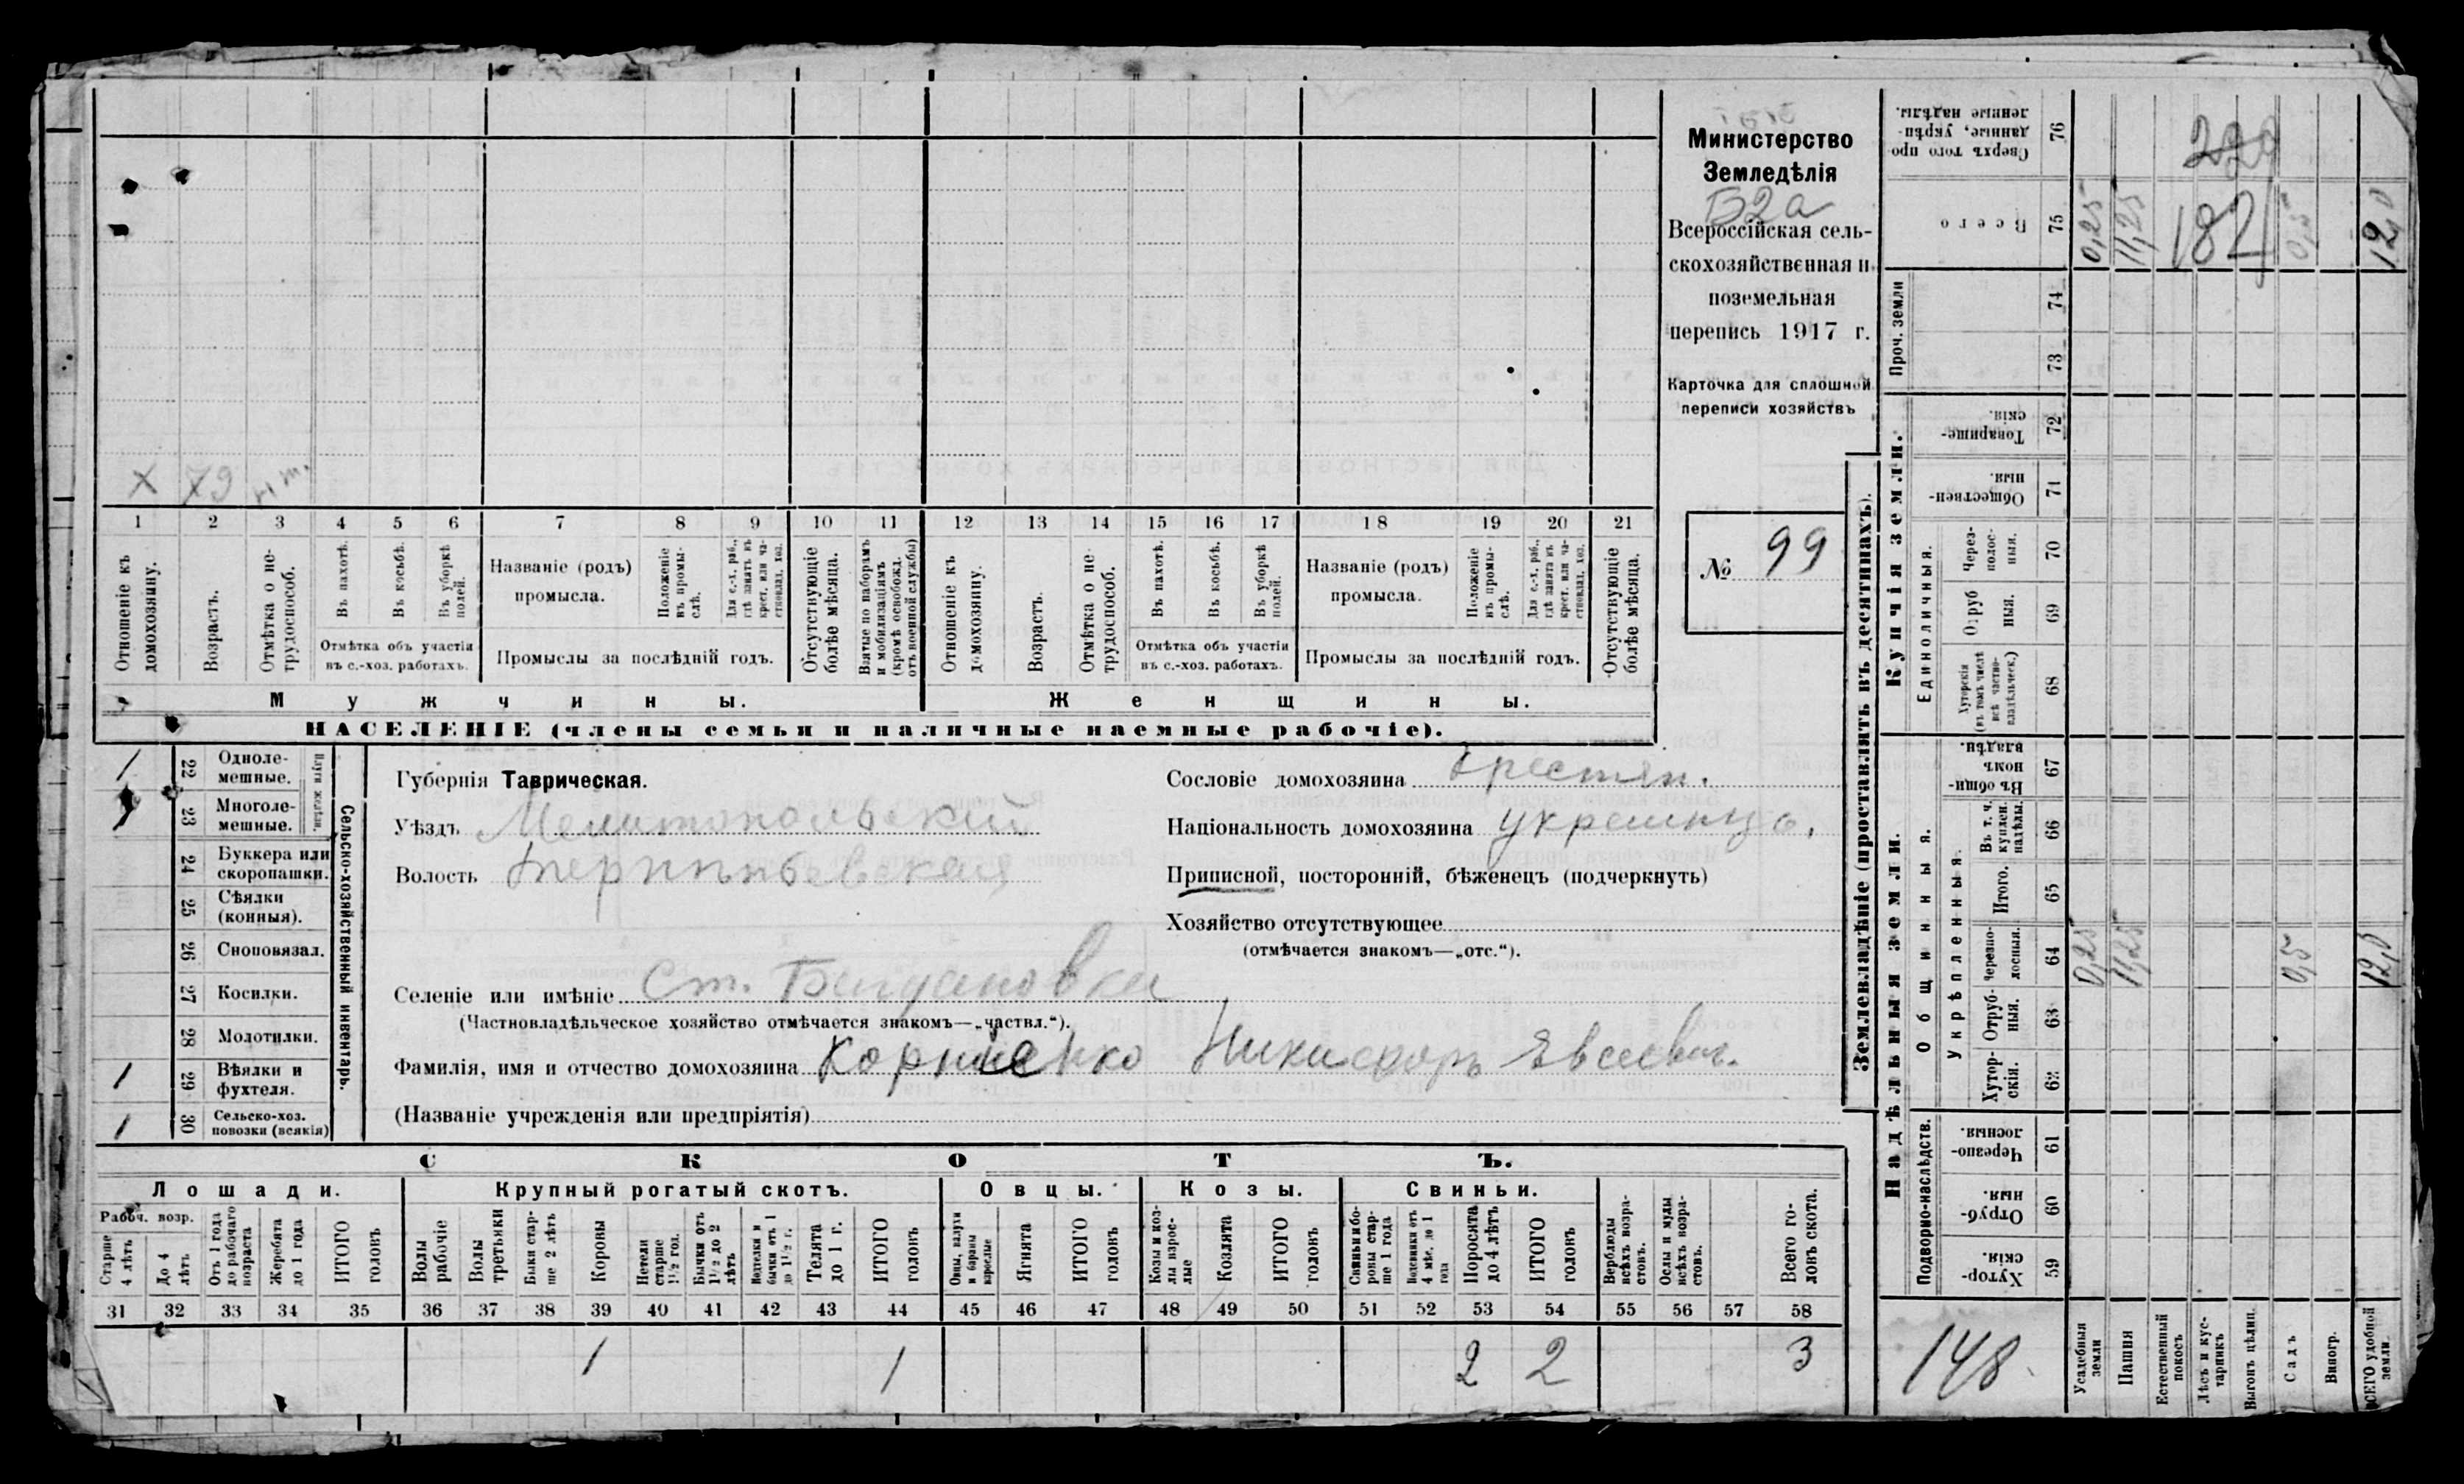 Министерство
Земледѣлія
Б2а
Всероссійская сель-
скохозяйственная и
поземельная
перепись 1917 г.
Карточка для сплошной
переписи хозяйствъ
№ 99
х 79 н т.
1 2 3 4 5 6 7 8 9 10 11 12 13 14 15 16 17 18 19 20 21
Отношеніе къ домохозяину.
Возрастъ.
Отмѣтка о не-трудоспособ.
Въ пахотѣ.
Въ косьбѣ.
Въ уборкѣ полей.
Отмѣтка объ участіи
въ с.-хоз. работахъ.
Названіе (родъ)
промысла.
Положеніе въ промы-слѣ.
Для с.-х. раб., гдѣ занятъ въ крест. или ча-стновлад. хоз.
Промыслы за послѣдній годъ.
Отсутствующіе болѣе мѣсяца.
Взятые по наборамъ и мобилизаціямъ (кромѣ освобожд. отъ военной службы)
Отношеніе къ домохозяину.
Возрастъ.
Отмѣтка о не-трудоспособ.
Въ пахотѣ.
Въ косьбѣ.
Въ уборкѣ полей.
Отмѣтка объ участіи
въ с.-хоз. работахъ.
Названіе (родъ)
промысла.
Положеніе въ промы-слѣ.
Для с.-х. раб., гдѣ занята въ крест. или ча-стновлад. хоз.
Промыслы за послѣдній годъ.
Отсутствующіе болѣе мѣсяца.
Мужчины.
Женщины.
НАСЕЛЕНІЕ (члены семьи и наличные наемные рабочіе).
Сельско-хозяйственный инвентарь.
Плуги желѣзн.
1 22 Одноле-мешные.
23 Многоле-мешные.
24 Буккера или скоропашки.
25 Сѣялки (конныя).
26 Сноповязал.
27 Косилки.
28 Молотилки.
1 29 Вѣялки и фухтеля.
1 30 Сельско-хоз. повозки (всякія)
Губернія Таврическая.
Уѣздъ Мелитопольский
Волость Терпѣньевская
Селеніе или имѣніе Ст. Богдановка
(Частновладѣльческое хозяйство отмѣчается знакомъ—„частвл.“).
Фамилія, имя и отчество домохозяина Корниенко Никифоръ Евсеевич.
(Названіе учрежденія или предпріятія)
Сословіе домохозяина Крестян.
Національность домохозяина украинцъ.
Приписной, посторонній, бѣженецъ (подчеркнуть)
Хозяйство отсутствующее
(отмѣчается знакомъ—„отс.“).
СКОТЪ.
Лошади. Крупный рогатый скотъ. Овцы. Козы. Свиньи.
Рабоч. возр.
Старше 4 лѣтъ
До 4 лѣтъ
Отъ 1 года до рабочаго возраста
Жеребята до 1 года
ИТОГО головъ
Волы рабочіе
Волы третьяки
Быки стар-ше 2 лѣтъ
Коровы
Нетели старше 1½ год.
Бычки отъ 1½ до 2 лѣтъ
Подтелки и бычки отъ 1 до 1½ г.
Телята до 1 г.
ИТОГО головъ
Овцы, валухи и бараны взрослые
Ягнята
ИТОГО головъ
Козы и коз-лы взрос-лые
Козлята
ИТОГО головъ
Свиньи и бо-ровы стар-ше 1 года
Подсвинки отъ 4 мѣс. до 1 года
Поросята до 4 лѣтъ
ИТОГО головъ
Верблюды всѣхъ возра-стовъ.
Ослы и мулы всѣхъ возра-стовъ.
Всего го-ловъ скота.
31 32 33 34 35 36 37 38 39 40 41 42 43 44 45 46 47 48 49 50 51 52 53 54 55 56 57 58
1 1 2 2 3
Землевладѣніе (проставлять въ десятинахъ).
Надѣльныя земли.
Купчія земли.
Проч. земли
Подворно-наслѣдств.
Общинныя.
Укрѣпленныя.
Единоличныя.
Сверхъ того про-данные, укрѣп-ленные надѣлы. 76 220
Всего 75 0,25 11,25 182 0,5 12,0
74
73
Товарище-скія. 72
Обществен-ныя 71
Через-полос-ныя. 70
Отруб-ныя. 69
Хуторскія (въ томъ числѣ всѣ частно-владѣльческ.) 68
Въ общи-номъ владѣн. 67
Въ т. ч. куплен. надѣлы. 66
Итого. 65
Черезпо-лосныя. 64 0,25 11,25 0,5 12,0
Отруб-ныя. 63
Хутор-скія. 62
Черезпо-лосныя. 61
Отруб-ныя. 60
Хутор-скія. 59
148
Усадебныя земли
Пашня
Естественный покосъ
Лѣсъ и кус-тарникъ
Выгонъ цѣлин.
Садъ
Виногр.
ВСЕГО удобной земли